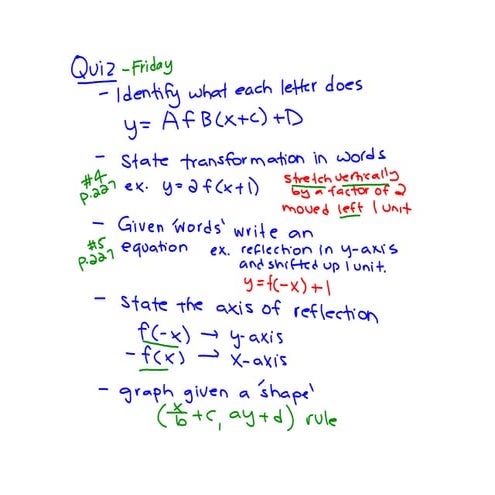 Quiz - Friday
- Identify what each letter does
y = A f B(x+c) + D
- State transformation in words
#4 p.227 ex. y = 2f(x+1) stretch vertically
by a factor of 2
moved left 1 unit
- Given 'words' write an
#5 p.227 equation ex. reflection in y-axis
and shifted up 1 unit.
y = f(-x) + 1
- State the axis of reflection
f(-x) → y-axis
- f(x) → x-axis
- graph given a 'shape'
(x/b + c, ay + d) rule